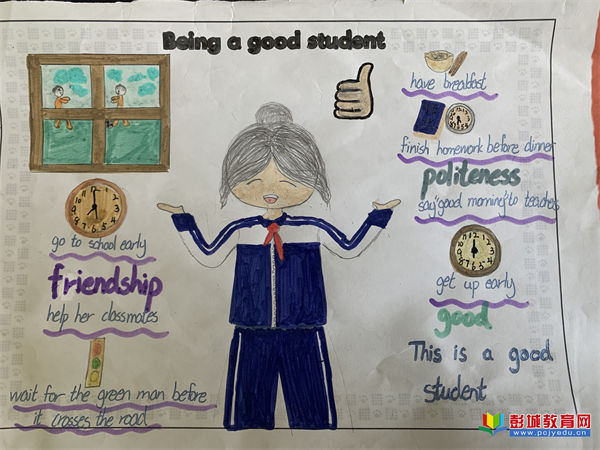 Being a good student
go to school early
friendship
help her classmates
wait for the green man before
it crosses the road
have breakfast
finish homework before dinner
politeness
say "good morning" to teachers
get up early
good
This is a good
student
彭城教育网
www.pcjyedu.cn